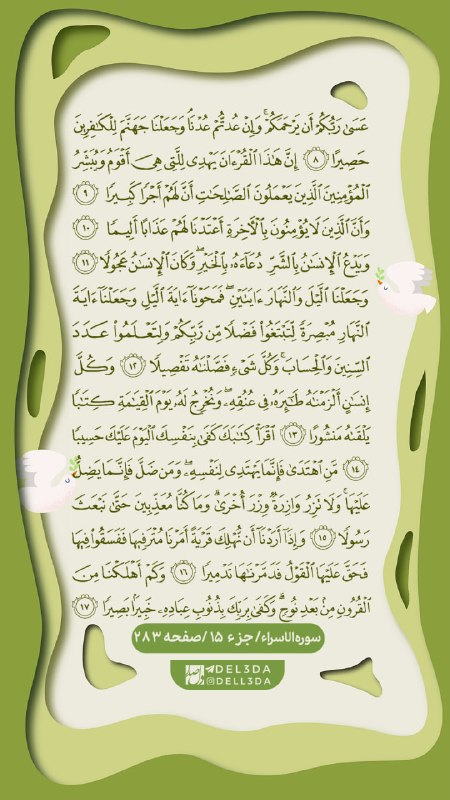 عَسَىٰ رَبُّكُمْ أَن يَرْحَمَكُمْ ۚ وَإِنْ عُدتُّمْ عُدْنَا ۘ وَجَعَلْنَا جَهَنَّمَ لِلْكَافِرِينَ
حَصِيرًا ﴿٨﴾ إِنَّ هَٰذَا الْقُرْءَانَ يَهْدِى لِلَّتِى هِىَ أَقْوَمُ وَيُبَشِّرُ
الْمُؤْمِنِينَ الَّذِينَ يَعْمَلُونَ الصَّالِحَاتِ أَنَّ لَهُمْ أَجْرًا كَبِيرًا ﴿٩﴾
وَأَنَّ الَّذِينَ لَا يُؤْمِنُونَ بِالْآخِرَةِ أَعْتَدْنَا لَهُمْ عَذَابًا أَلِيمًا ﴿١٠﴾
وَيَدْعُ الْإِنسَانُ بِالشَّرِّ دُعَاءَهُ بِالْخَيْرِ ۖ وَكَانَ الْإِنسَانُ عَجُولًا ﴿١١﴾
وَجَعَلْنَا الَّيْلَ وَالنَّهَارَ ءَايَتَيْنِ ۖ فَمَحَوْنَا ءَايَةَ الَّيْلِ وَجَعَلْنَا ءَايَةَ
النَّهَارِ مُبْصِرَةً لِّتَبْتَغُوا فَضْلًا مِّن رَّبِّكُمْ وَلِتَعْلَمُوا عَدَدَ
السِّنِينَ وَالْحِسَابَ ۚ وَكُلَّ شَىْءٍ فَصَّلْنَاهُ تَفْصِيلًا ﴿١٢﴾ وَكُلَّ
إِنسَانٍ أَلْزَمْنَاهُ طَائِرَهُ فِى عُنُقِهِ ۖ وَنُخْرِجُ لَهُ يَوْمَ الْقِيَامَةِ كِتَابًا
يَلْقَاهُ مَنشُورًا ﴿١٣﴾ اقْرَأْ كِتَابَكَ كَفَىٰ بِنَفْسِكَ الْيَوْمَ عَلَيْكَ حَسِيبًا
﴿١٤﴾ مَّنِ اهْتَدَىٰ فَإِنَّمَا يَهْتَدِى لِنَفْسِهِ ۖ وَمَن ضَلَّ فَإِنَّمَا يَضِلُّ
عَلَيْهَا ۚ وَلَا تَزِرُ وَازِرَةٌ وِزْرَ أُخْرَىٰ ۗ وَمَا كُنَّا مُعَذِّبِينَ حَتَّىٰ نَبْعَثَ
رَسُولًا ﴿١٥﴾ وَإِذَا أَرَدْنَا أَن نُّهْلِكَ قَرْيَةً أَمَرْنَا مُتْرَفِيهَا فَفَسَقُوا فِيهَا
فَحَقَّ عَلَيْهَا الْقَوْلُ فَدَمَّرْنَاهَا تَدْمِيرًا ﴿١٦﴾ وَكَمْ أَهْلَكْنَا مِنَ
الْقُرُونِ مِن بَعْدِ نُوحٍ ۗ وَكَفَىٰ بِرَبِّكَ بِذُنُوبِ عِبَادِهِ خَبِيرًا بَصِيرًا ﴿١٧﴾
سوره الاسراء/ جزء ۱۵ /صفحه ۲۸۳
DEL3DA
DELL3DA